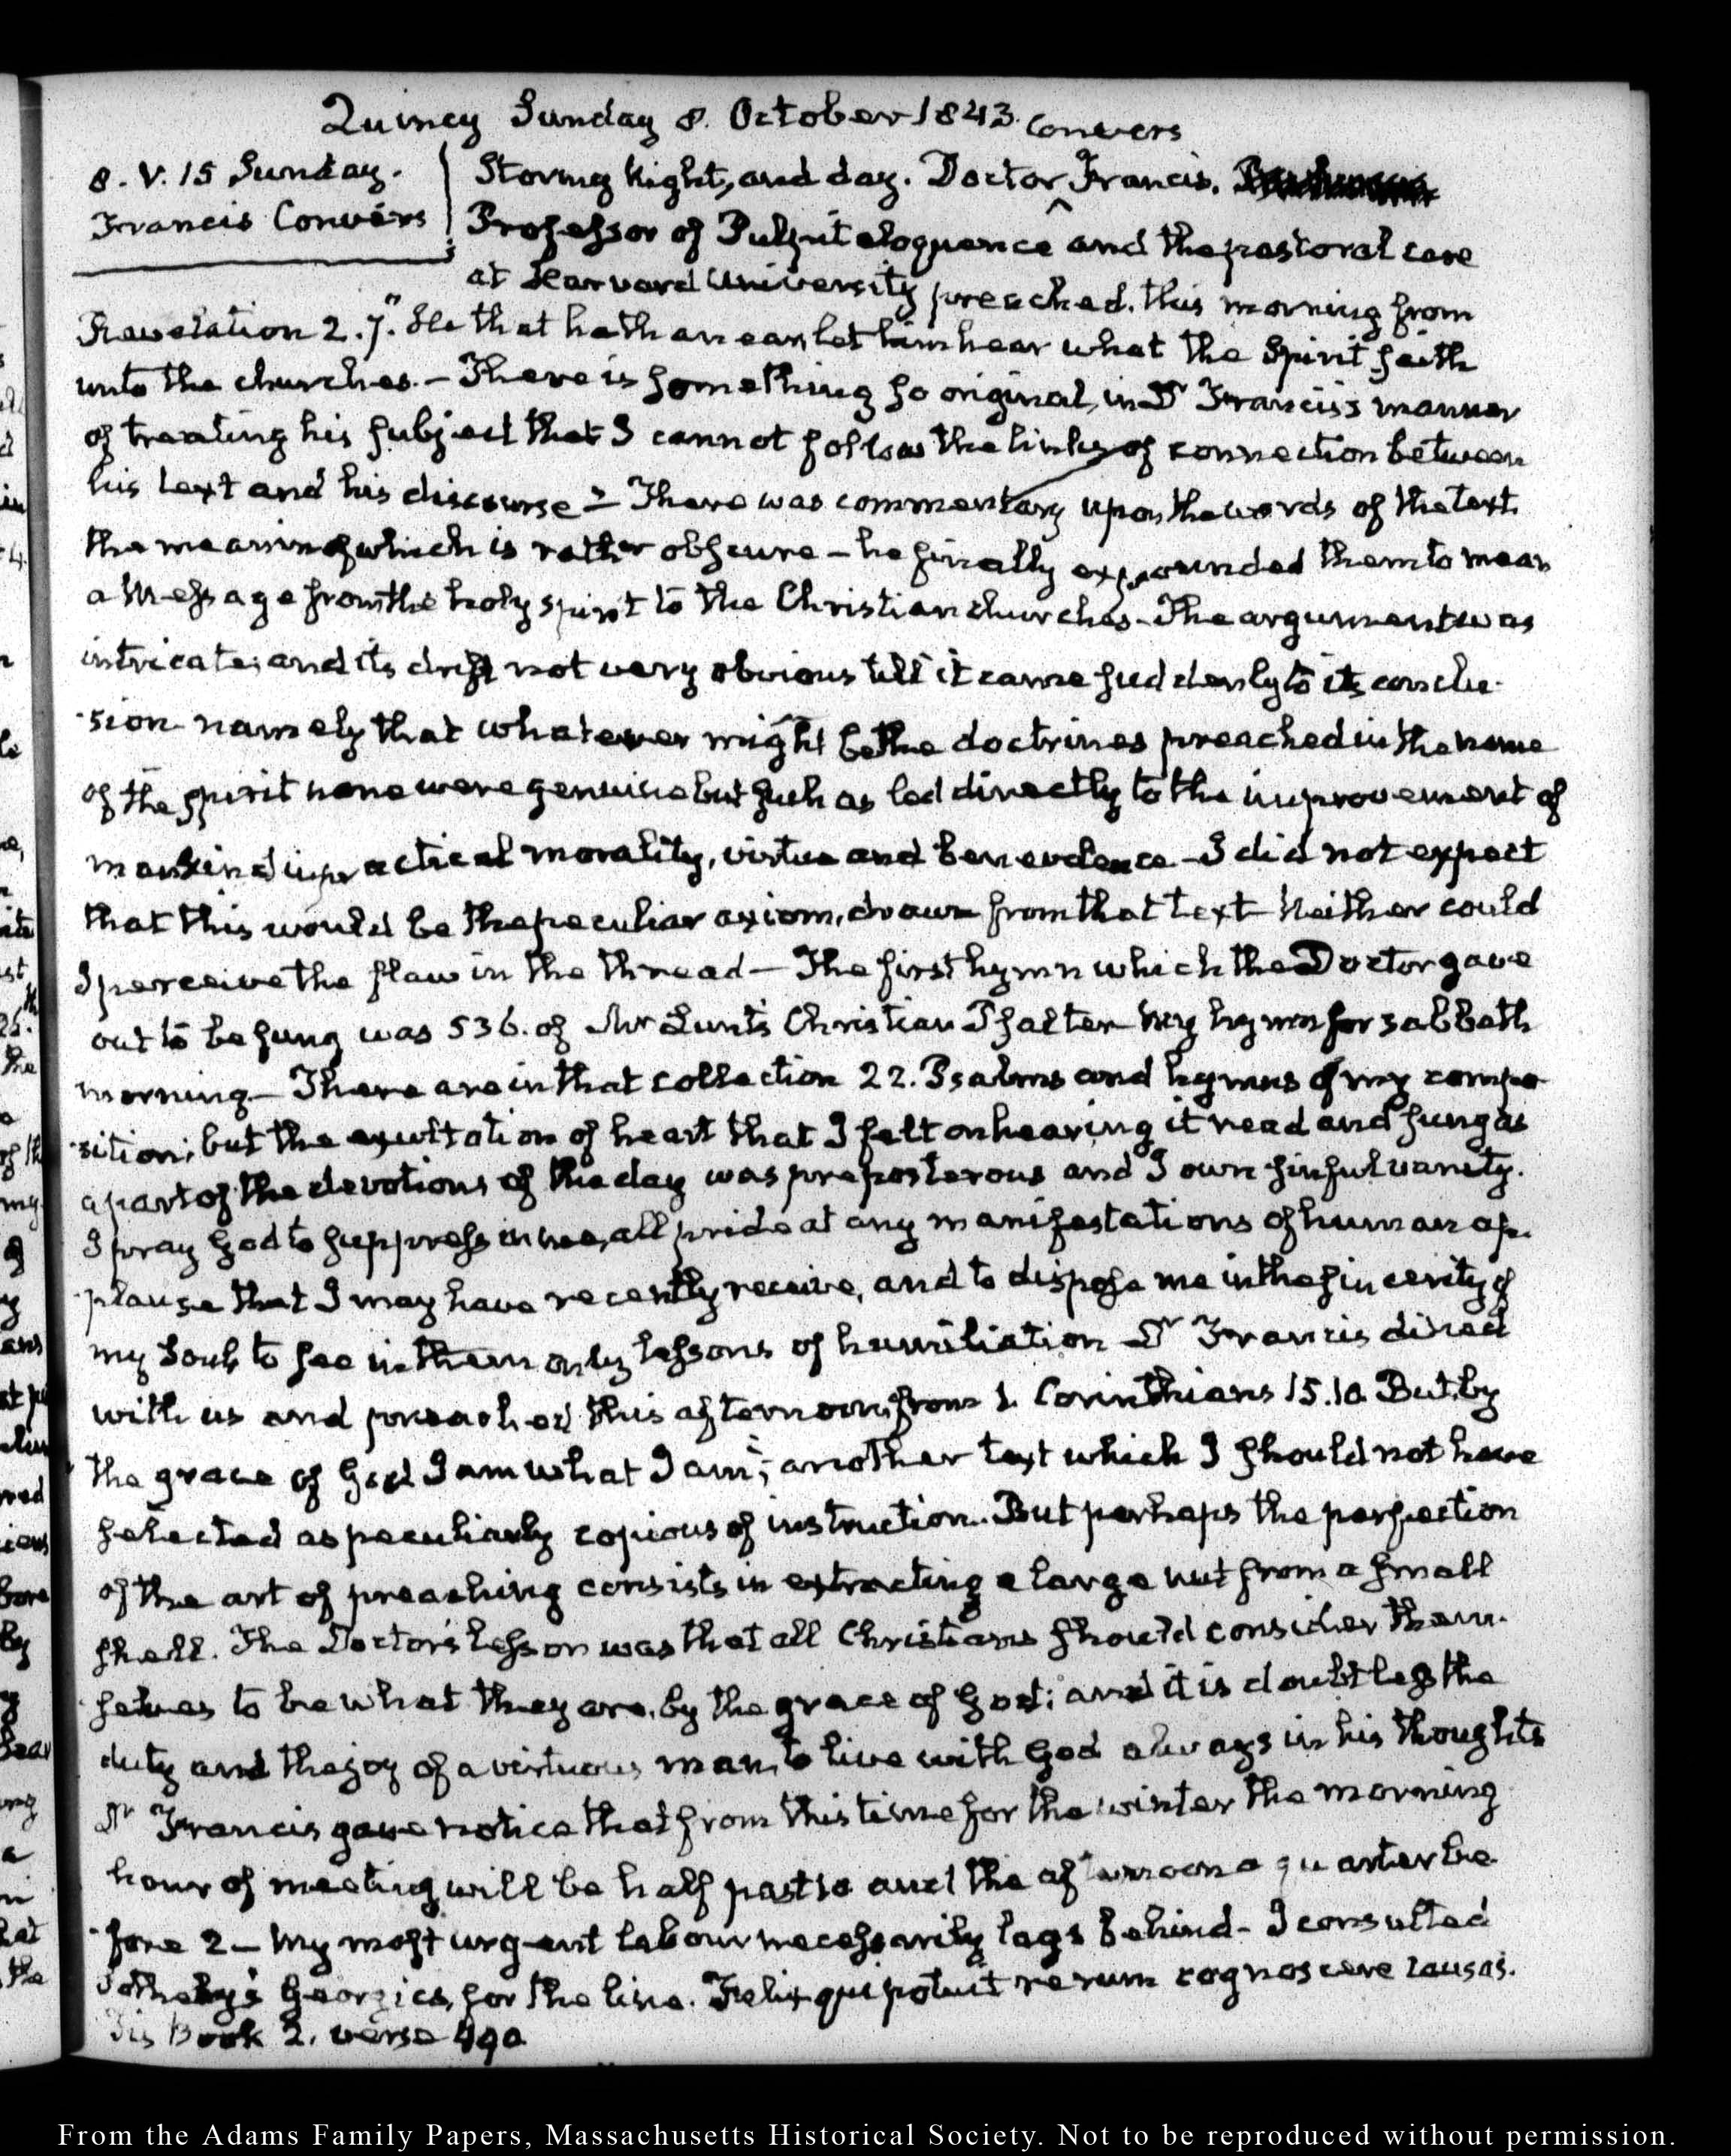 Quincy Sunday 8. October 1843.
Convers
8. V. 15 Sunday.
Francis Convers
Stormy Night, and day. Doctor ^ Francis.
Professor of Pulpit eloquence and the pastoral care
at Harvard University preached. this morning from
Revelation 2. 7. "He that hath an ear, let him hear what the Spirit saith
unto the churches. — There is something so original, in Dr Francis's manner
of treating his subject that I cannot follow the links of connection between
his text and his discourse — There was commentary upon the words of the text
the meaning of which is rather obscure — he finally expounded them to mean
a Message from the holy spirit to the Christian churches — The argument was
intricate; and its drift not very obvious till it came suddenly to its conclu-
-sion namely that whatever might be the doctrines preached in the name
of the spirit none were genuine but such as led directly to the improvement of
mankind in practical morality, virtue and benevolence — I did not expect
that this would be the peculiar axiom, drawn from that text — Neither could
I perceive the flaw in the thread — The first hymn which the Doctor gave
out to be sung was 536. of Mr Lunt's Christian Psalter — My hymn for sabbath
morning — There are in that collection 22. Psalms and hymns of my compo-
-sition; but the exultation of heart that I felt on hearing it read and sung as
a part of the devotions of the day was preposterous and I own sinful vanity.
I pray God to suppress in me, all pride at any manifestations of human ap-
-plause that I may have recently receive, and to dispose me in the sincerity of
my Soul, to see in them only lessons of humiliation — Dr Francis dined
with us and preached this afternoon, from 1. Corinthians 15.10. But, by
the grace of God I am what I am; another text which I should not have
selected as peculiarly copious of instruction. But perhaps the perfection
of the art of preaching consists in extracting a large nut from a small
shell. The Doctor's lesson was that all Christians should consider them-
selves to be what they are, by the grace of God; and it is doubtless the
duty and the joy of a virtuous man, to live with God always in his thoughts
Dr Francis gave notice that from this time for the winter the morning
hour of meeting will be half past 10 and the afternoon a quarter be-
-fore 2 — My most urgent labour necessarily lags behind — I consulted
Sotheby's Georgics, for the line. Felix qui potuit rerum cognoscere causas.
Tis Book 2. verse 490
From the Adams Family Papers, Massachusetts Historical Society. Not to be reproduced without permission.